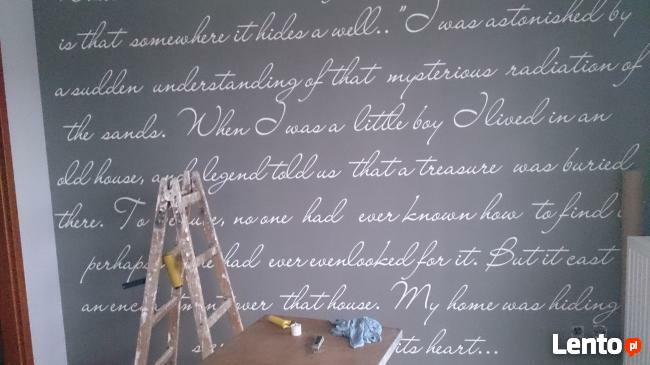 is that somewhere it hides a well.. "I was astonished by
a sudden understanding of that mysterious radiation of
the sands. When I was a little boy I lived in an
old house, and legend told us that a treasure was buried
there. To be sure, no one had ever known how to find
perhaps had ever evenlooked for it. But it cast
an enchantment over that house. My home was hiding
its heart...
Lento.pl